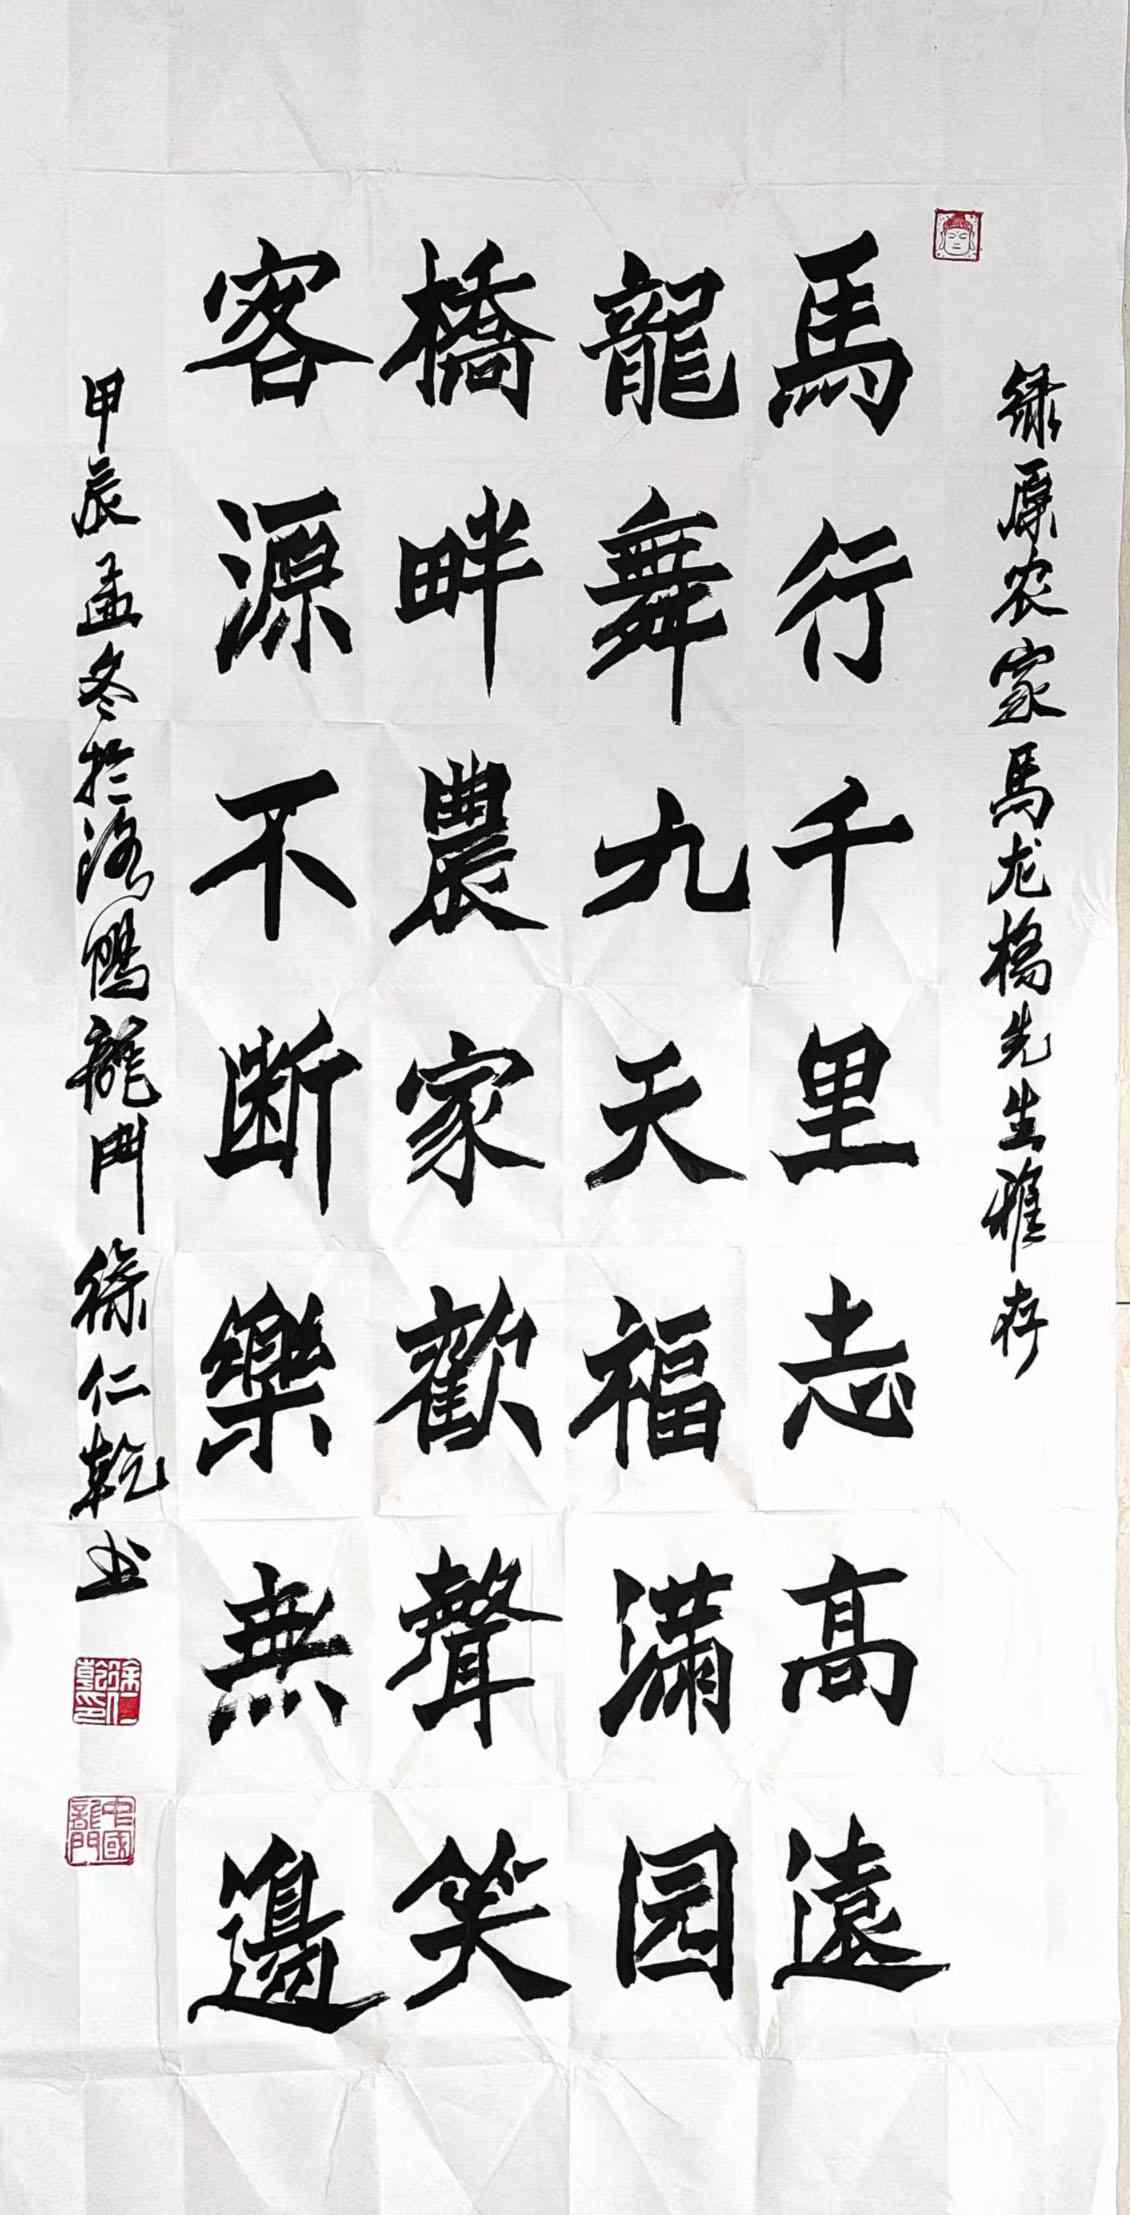 绿原农家马龙橋先生雅存
馬行千里志高遠
龍舞九天福满园
橋畔農家歡聲笑
客源不断樂無邊
甲辰孟冬於洛陽龍門徐仁乾书
徐仁乾印
中國龍門